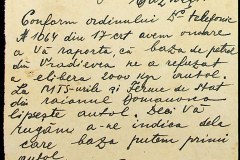 Conform ordinului Dv telefonic
№ 1064 din 17 crt avem onoare
a Vă raporta, că baza de petrol
din Vradievca ne a refuzat
a elibera 2000 kgr autol.
La MTS-urile și Ferme de Stat
din raionul Domaniovca
lipsește autol. Deci Vă
rugăm a-ne indica dela
care baza putem primi
autol